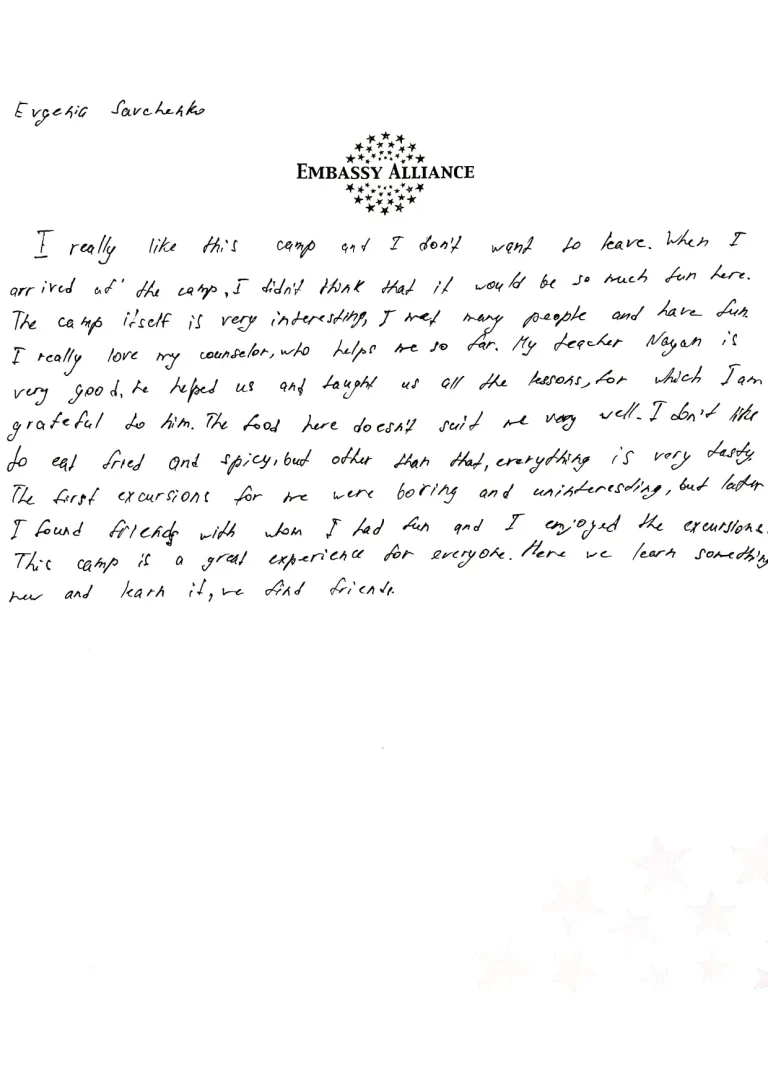 Evgenia Savchenko
EMBASSY ALLIANCE
I really like this camp and I don't want to leave. When I
arrived at the camp, I didn't think that it would be so much fun here.
The camp itself is very interesting, I met many people and have fun.
I really love my counselor, who helps me so far. My teacher Nayan is
very good, he helped us and taught us all the lessons, for which I am
grateful to him. The food here doesn't suit me very well. I don't like
to eat fried and spicy, but other than that, everything is very tasty.
The first excursions for me were boring and uninteresting, but later
I found friends with whom I had fun and I enjoyed the excursions.
This camp is a great experience for everyone. Here we learn something
new and learn it, we find friends.